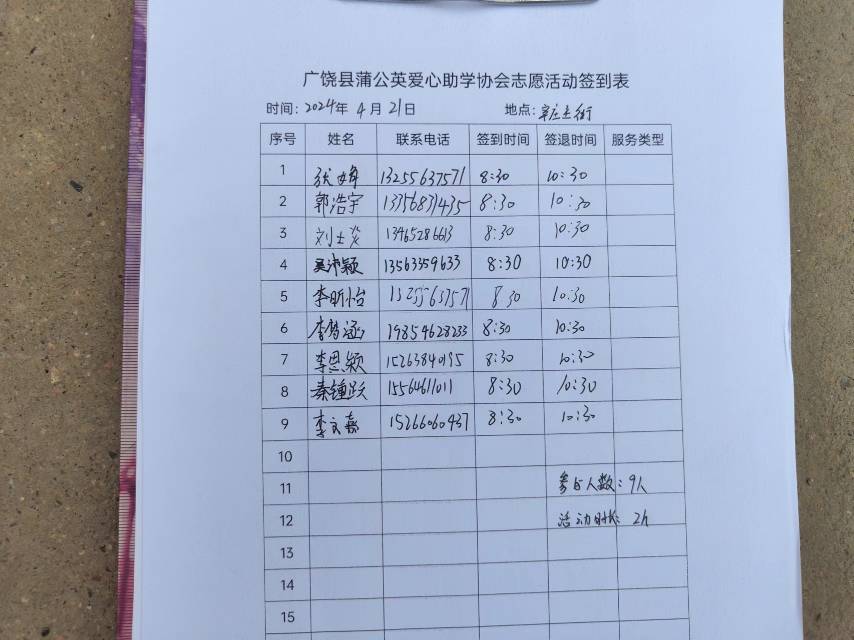 广饶县蒲公英爱心助学协会志愿活动签到表
时间: 2024年 4月 21日 地点:
序号 姓名 联系电话 签到时间 签退时间 服务类型
1 13255637571 8:30 10:30
2 郭浩宇 13356831435 8:30 10:30
3 刘士炎 13465286613 8:30 10:30
4 13563359633 8:30 10:30
5 李昕怡 13255637571 8 30 10:30
6 李梦涵 19854628233 8:30 10:30
7 李思颖 15263840195 8:30 10:30
8 秦锺跃 15564611011 8:30 10:30
9 李文嘉 15266060437 8:30 10:30
10
11 参与人数: 9人
12 活动时长: 2h
13
14
15